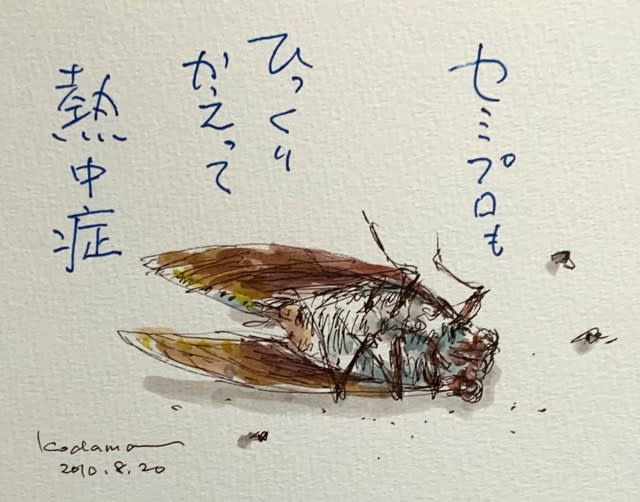 セミプロも
ひっくり
かえって
熱中症
Kodama
2010.8.20